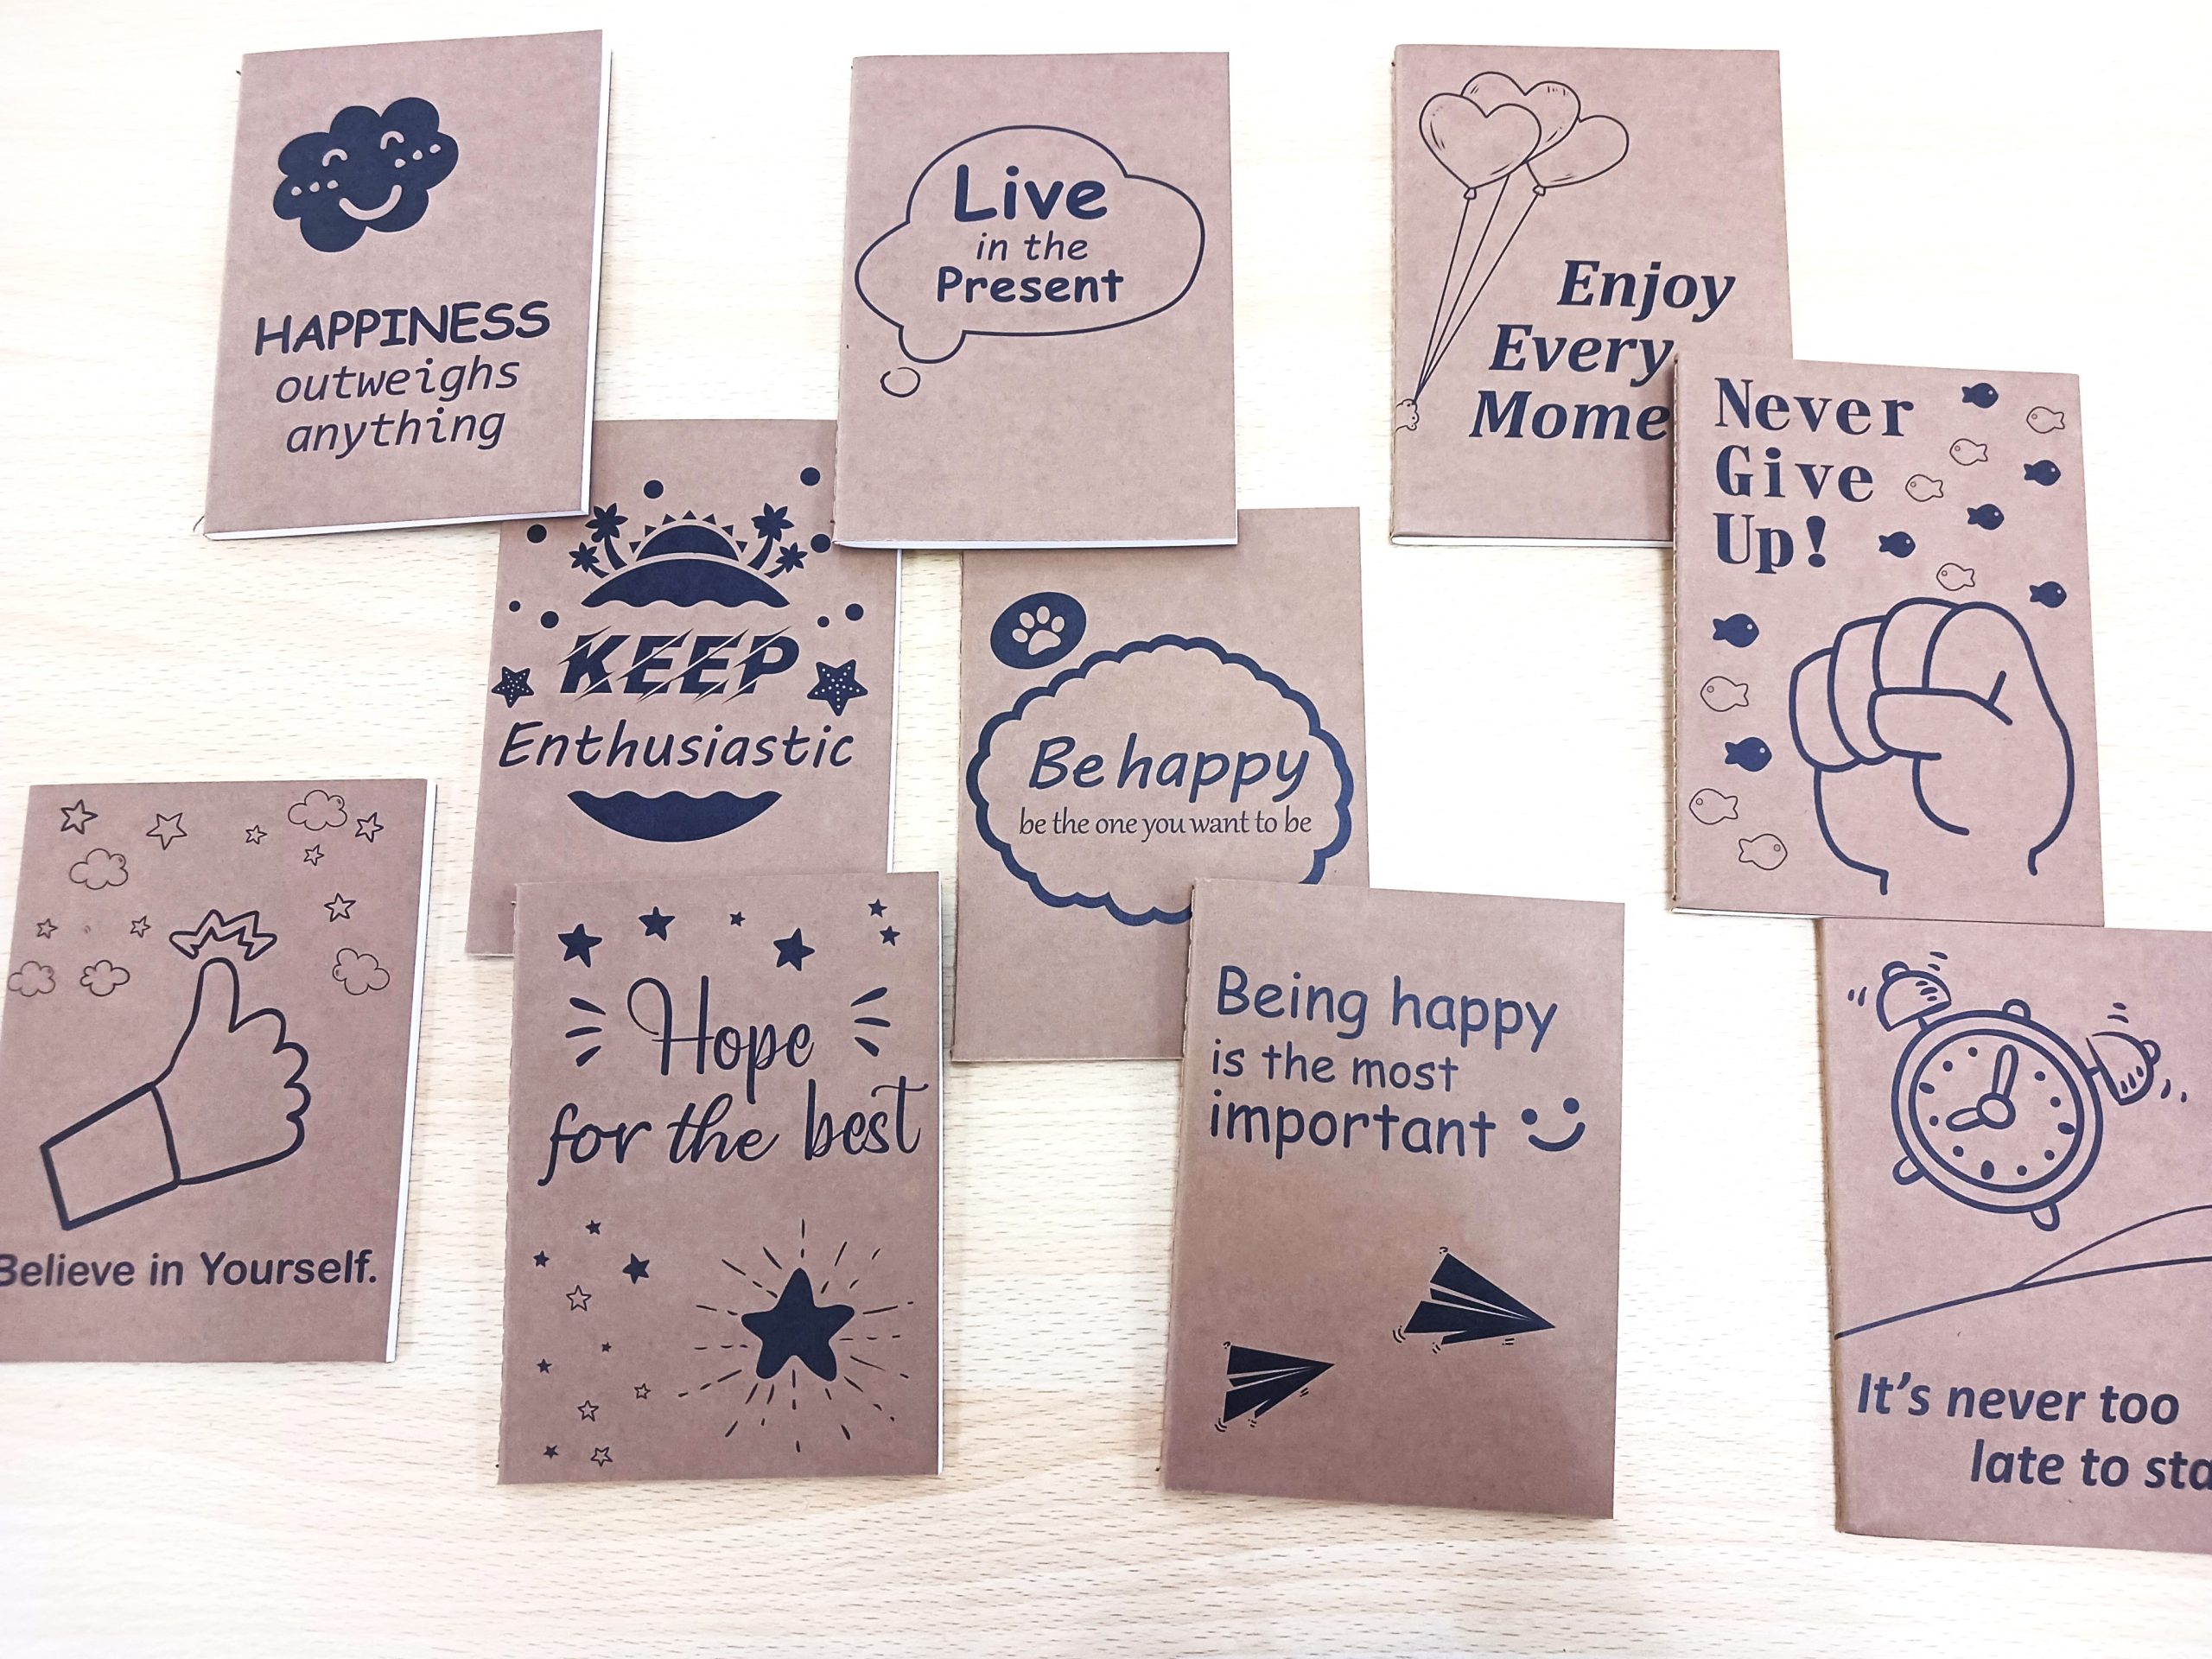 HAPPINESS
outweighs
anything
Live
in the
Present
Enjoy
Every
Mome
Never
Give
Up!
KEEP
Enthusiastic
Be happy
be the one you want to be
Believe in Yourself.
Hope
for the best
Being happy
is the most
important
It's never too
late to sta